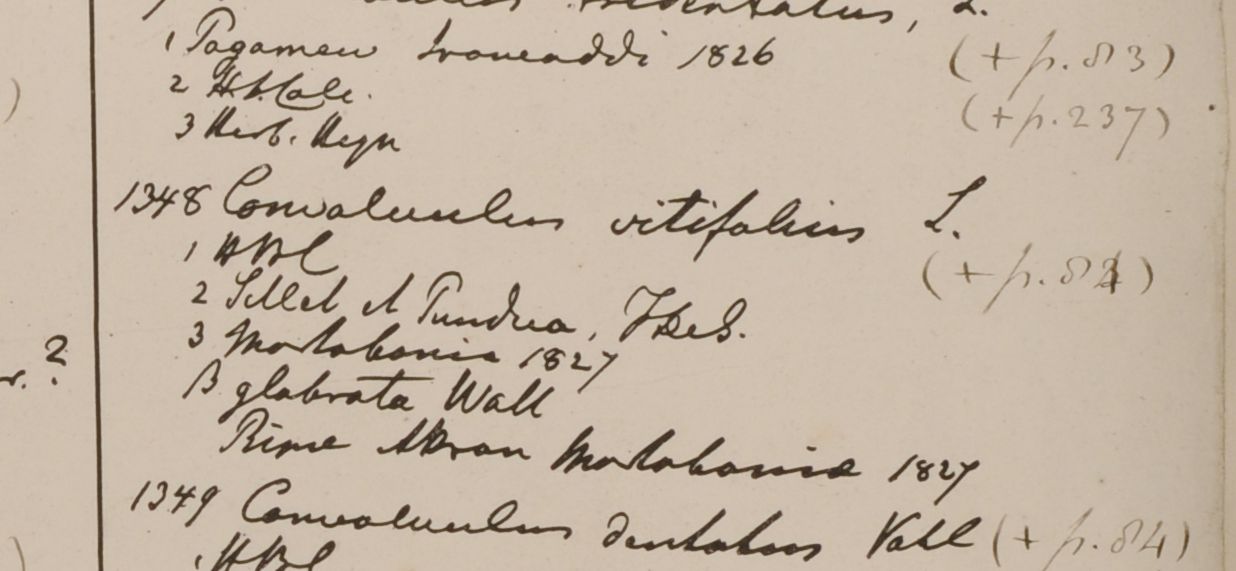 tridentatus, L.
1 Pagamew Irawaddi 1826 (+ p. 83)
2 H. Calc. (+ p. 237)
3 Herb. Heyn
1348 Convolvulus vitifolius L.
1 HBC (+ p. 82)
2 Sillet et Pundua, FDeS.
3 Martabania 1827
β glabrata Wall
Ripae Attran Martabaniae 1827
1349 Convolvulus dentatus Vahl (+ p. 84)
1 HBC
r. ?